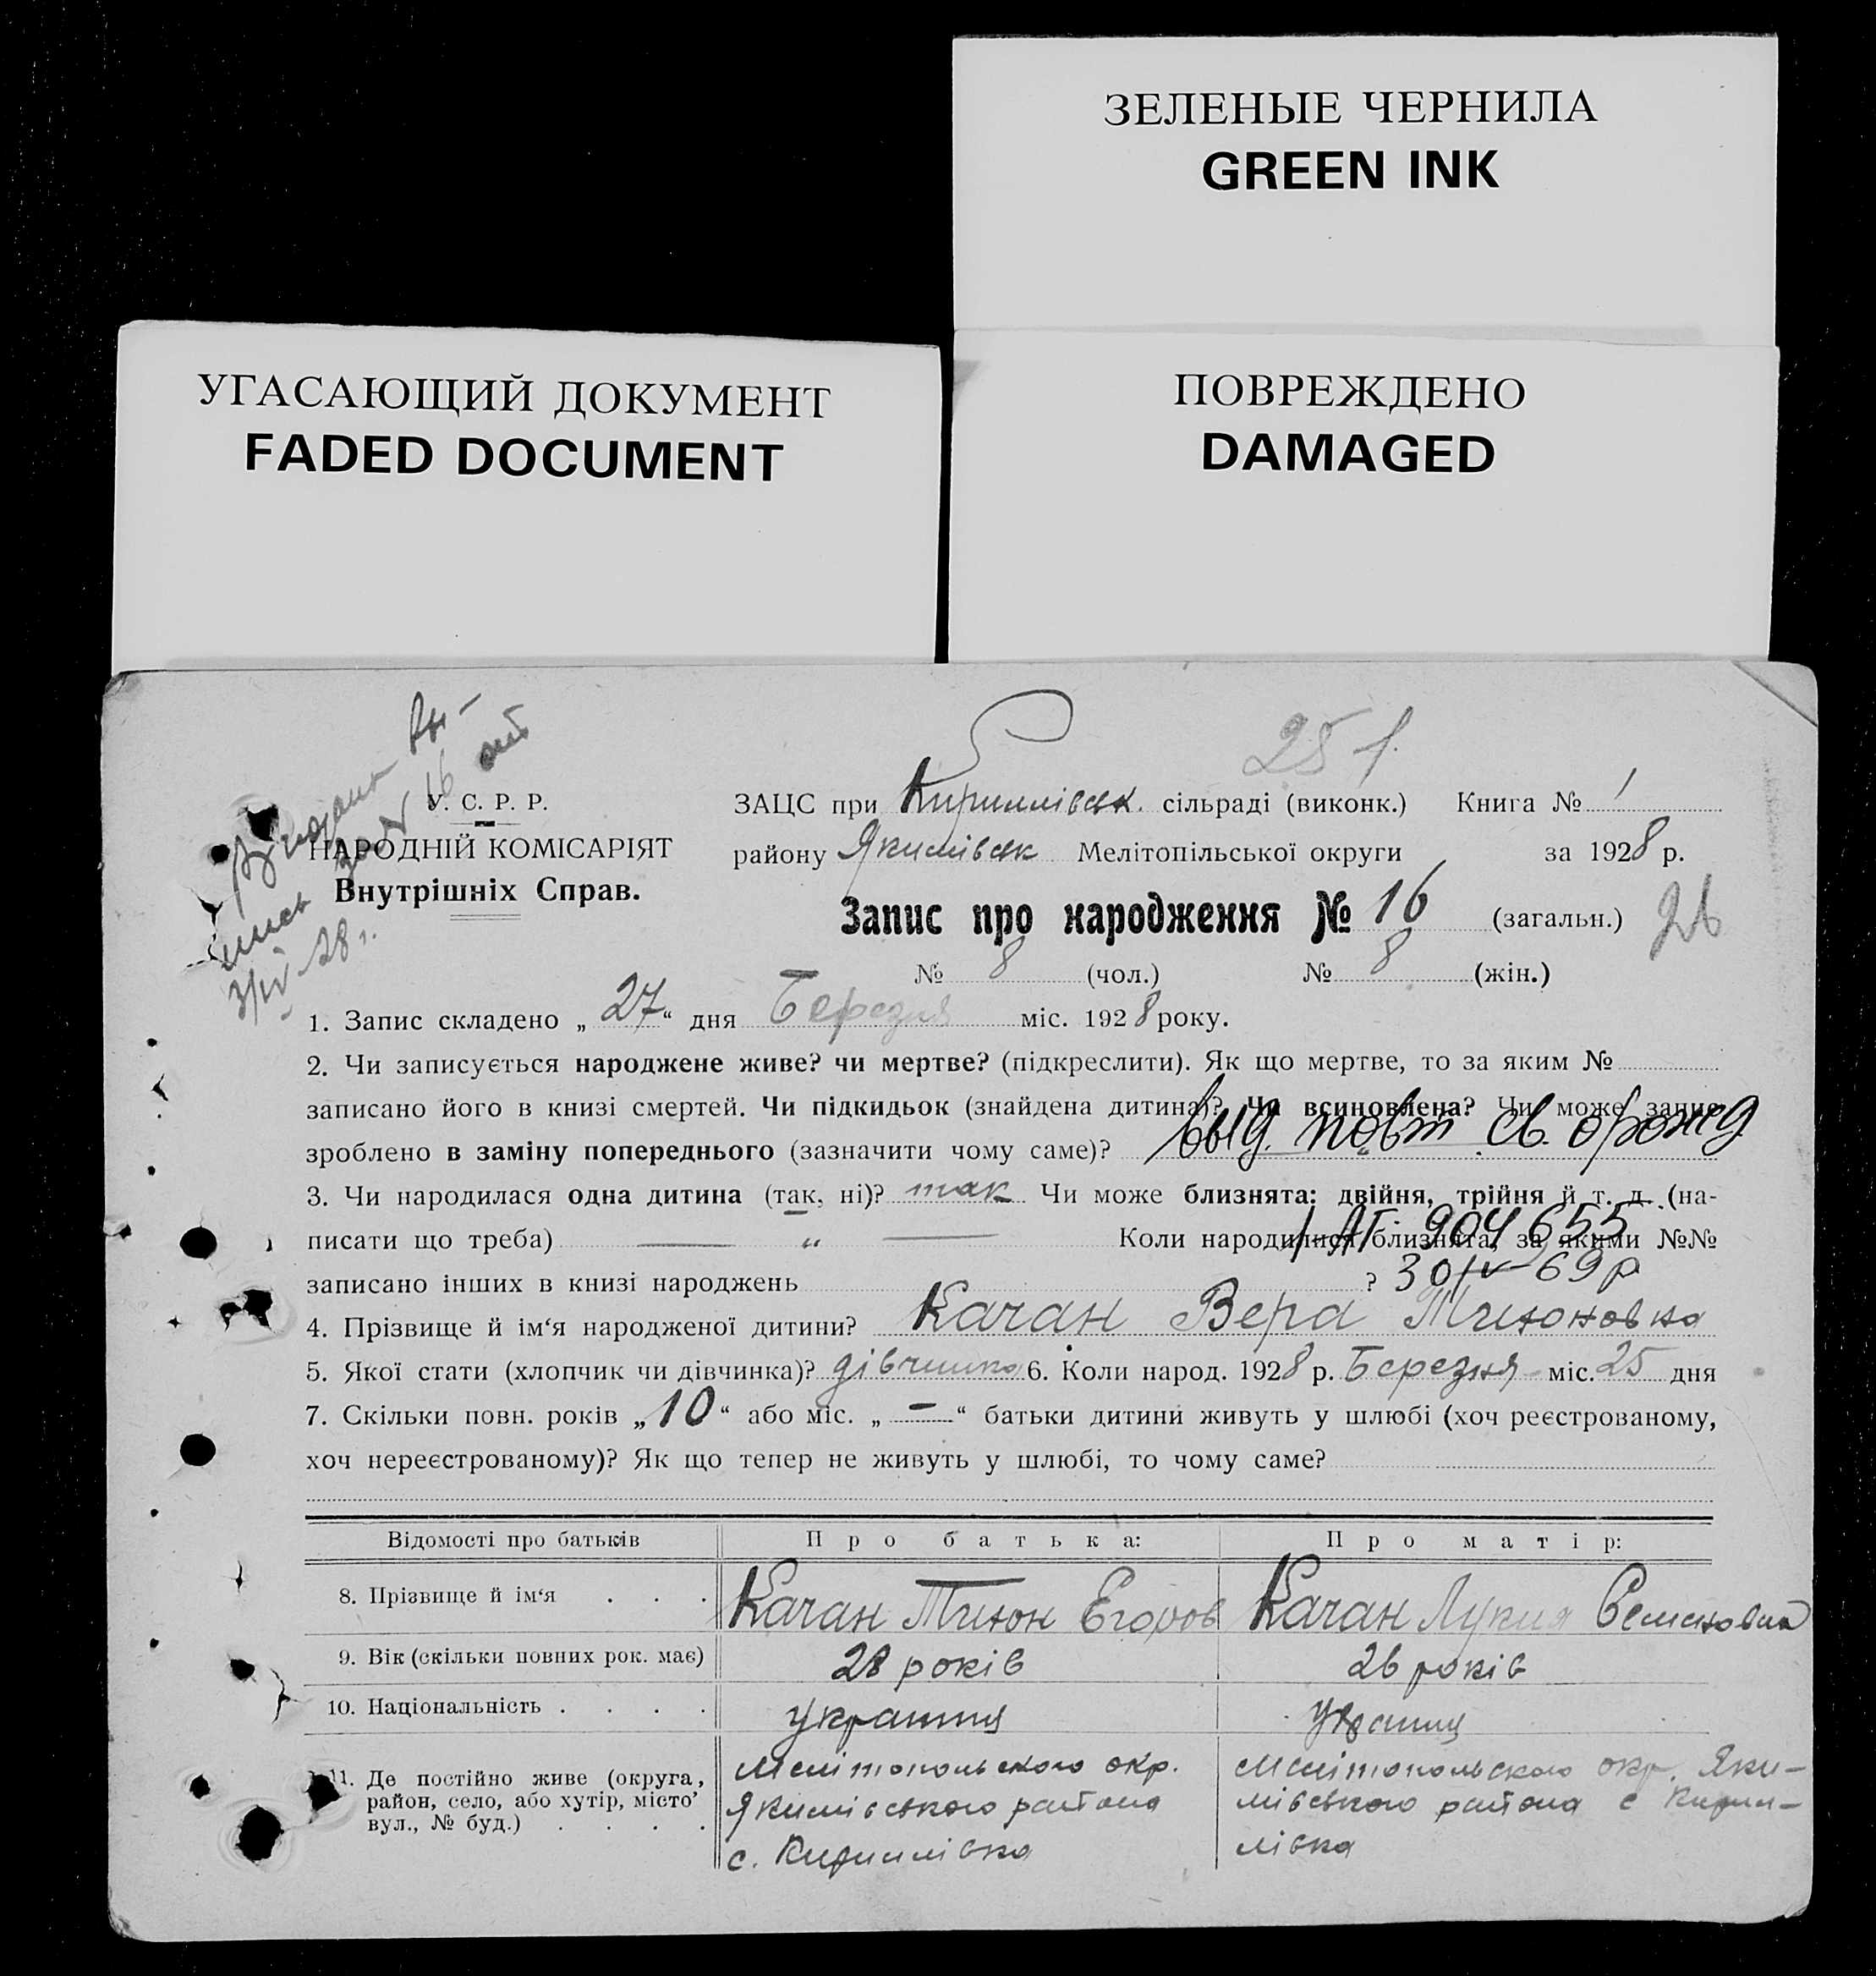 ЗЕЛЕНЫЕ ЧЕРНИЛА
GREEN INK
УГАСАЮЩИЙ ДОКУМЕНТ
FADED DOCUMENT
ПОВРЕЖДЕНО
DAMAGED
25
У. С. Р. Р.
НАРОДНІЙ КОМІСАРІЯТ
Внутрішніх Справ.
ЗАЦС при Кириллівськ. сільраді (виконк.) Книга № 1
району Якимівськ Мелітопільської округи за 1928 р.
Запис про народження № 16 (загальн.) 26
№ 8 (чол.) № 8 (жін.)
3/IV 28 г.
1. Запис складено „27“ дня Березня міс. 1928 року.
2. Чи записується народжене живе? чи мертве? (підкреслити). Як що мертве, то за яким №
записано його в книзі смертей. Чи підкидьок (знайдена дитина)? Чи всиновлена? Чи може запис
зроблено в заміну попереднього (зазначити чому саме)? выд. повт св. о рожд
3. Чи народилася одна дитина (так, ні)? так Чи може близнята: двійня, трійня й т. д. (на-
писати що треба) — „ — Коли народилися близнята, за якими №№
904655
записано інших в книзі народжень ? 30/IV-69 р
4. Прізвище й ім‘я народженої дитини? Качан Вера Тихоновна
5. Якої стати (хлопчик чи дівчинка)? дівчинка 6. Коли народ. 1928 р. Березня міс. 25 дня
7. Скільки повн. років „10“ або міс. „—“ батьки дитини живуть у шлюбі (хоч реєстрованому,
хоч нереєстрованому)? Як що тепер не живуть у шлюбі, то чому саме?
Відомості про батьків Про батька: Про матір:
8. Прізвище й ім‘я . . . Качан Тихон Егоров Качан Лукия Семеновна
9. Вік (скільки повних рок. має) 28 років 26 років
10. Національність . . . . українц
11. Де постійно живе (округа, район, село, або хутір, місто’ вул., № буд.) . . . .
Мелітопольського окр.
Якимівського района
с. Кириллівка
Мелітопольского окр. Яки-
мівського района с Кирил-
лівка